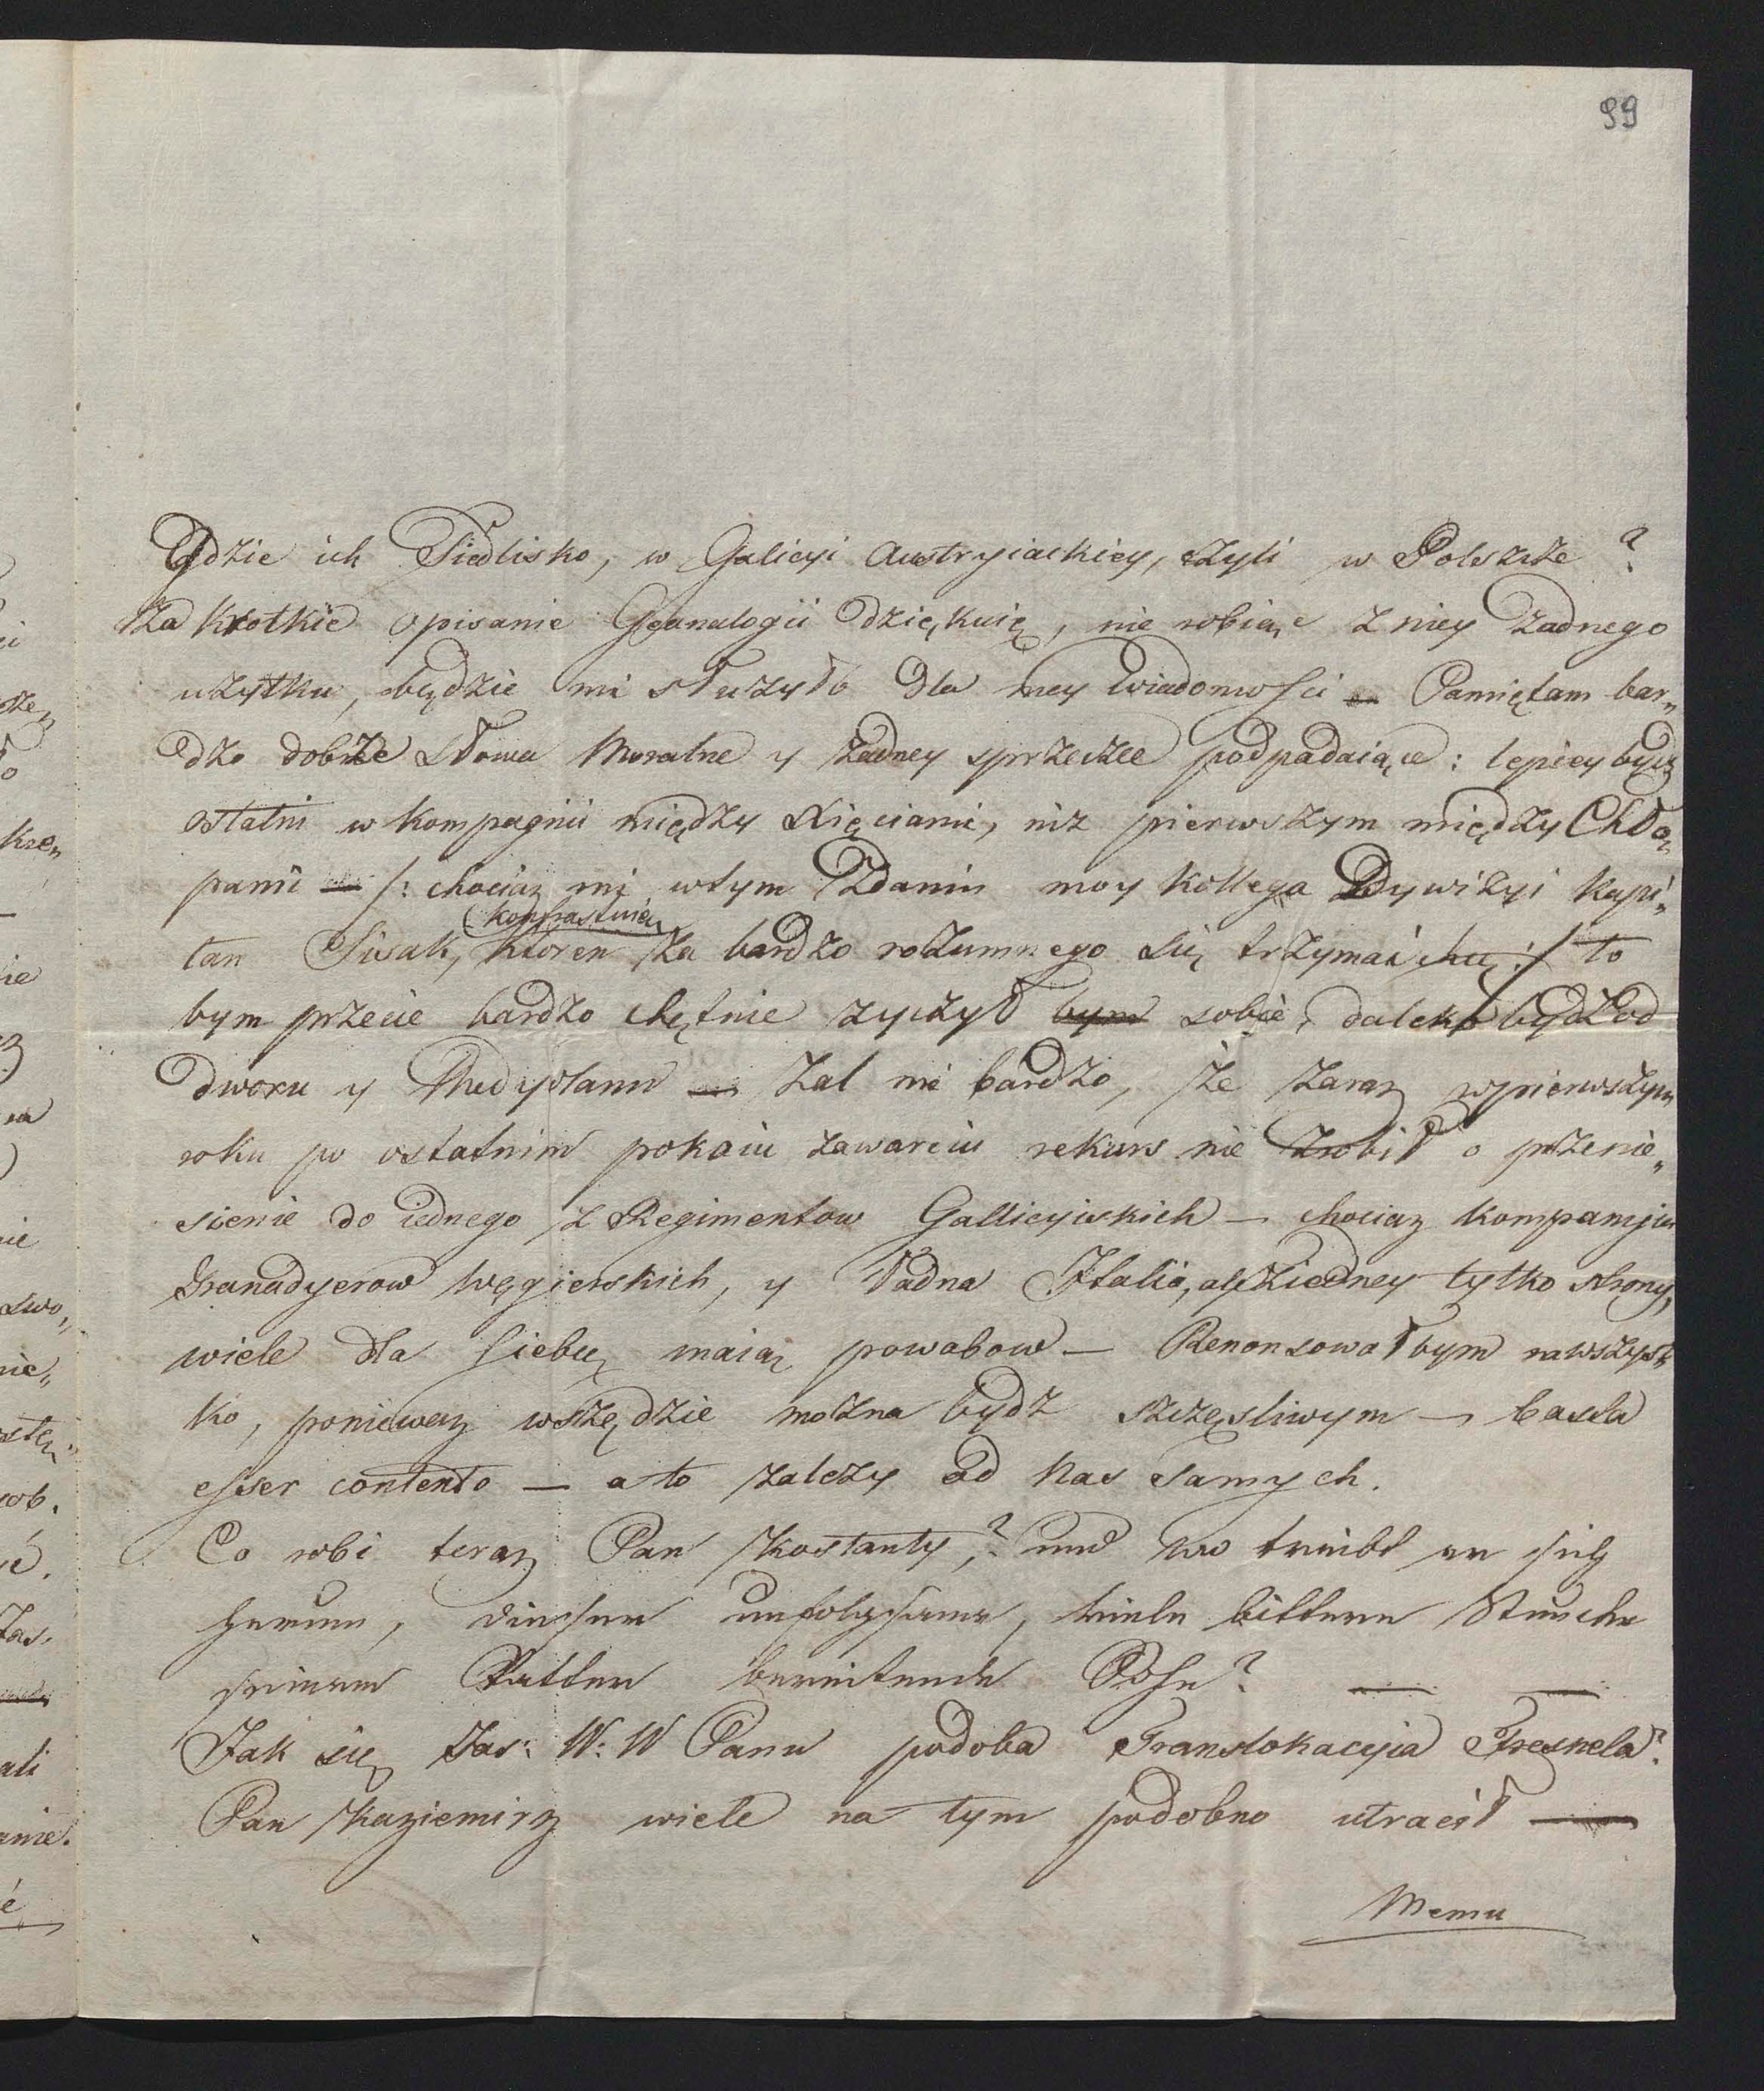 99
Gdzie ich Siedlisko, w Galicyi Austryiackiey, czyli w Polszcze?
Za krotkie opisanie Geanalogii dziękuię, nie robiąc z niey żadnego
użytku, będzie mi służyło dla mey wiadomości — Pamiętam bar„
dzo dobrze słowa Moralne y żadney sprzeczce podpadaiące: lepiey bydz
ostatni w kompagnii między Xięciami, niz pierwszym między Chło„
pami — /: chociaz mi wtym Zdaniu moy kollega Dywizyi kapi„
tan Sivak, ktoren za bardzo rozumnego się trzymać chce :/ to
bym przecie bardzo chętnie zyczył bym sobie, daleko bydz od
Dworu y Medyolanu — Zal mi bardzo, że zaraz wpierwszym
roku po ostatnim pokoiu zawarciu rekurs nie zrobił o przenie„
sienie do iednego z Regimentow Galliciyskich — chociaz kompaniia
Granadyerow Węgierskich, y Ładna Italia, ale ziedney tylko strony,
wiele dla siebie maią powabow — Renonsowałbym nawszyst„
ko, poniewaz wszędzie można bydz szczęsliwym — basta
esser contento — a to zalezy od nas samych.
Co robi teraz Pan Kostanty,? und wo treibt er sich
herum, dieser unfolgsame, viele bittere Stunden
seinem Vatter bereitende Sohn? — —
Jak się Jas: W: W Panu podoba Translokacyia Fresnela?
Pan Kaziemirz wiele na tym podobno utracił —
Memu